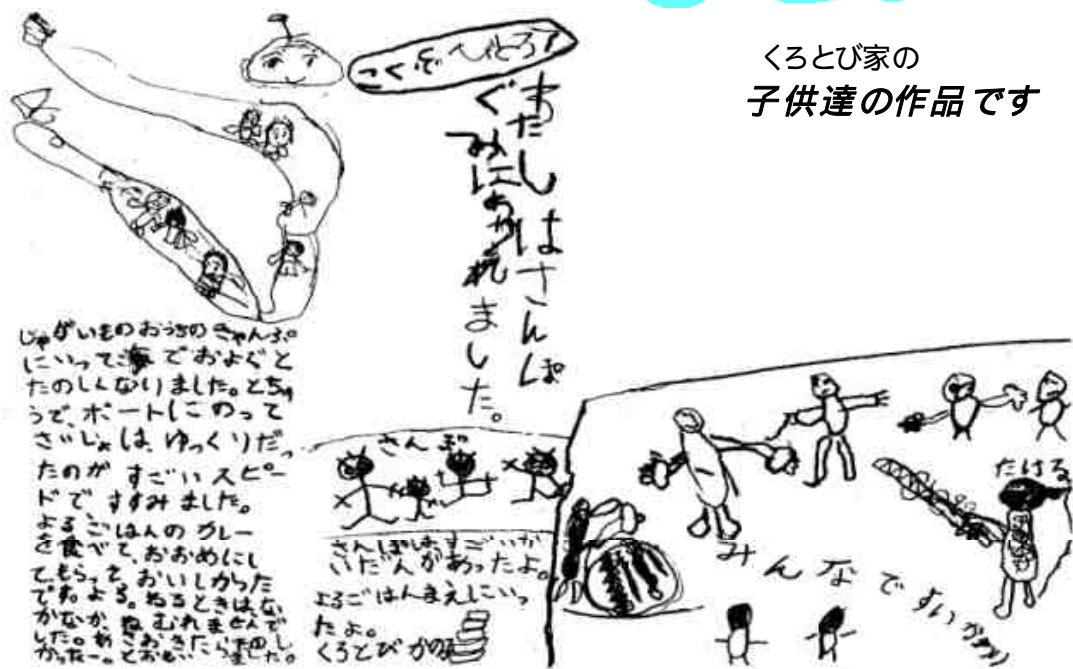 くろとび家の
子供達の作品です
こくぞ
わたしはさんぽ
ぐみにわかれました。
じゃがいものおうちのきゃんぷ
にいって海でおよぐと
たのしくなりました。とちゅ
うで、ボートにのって
さいしょは、ゆっくりだっ
たのが すごいスピー
ドで、すすみました。
よるごはんのカレー
を食べて、おおめにし
てもらって、おいしかった
です。よる。ねるときはな
かなか、ねむれませんで
した。あさおきたらたのし
かったー。とおもいました。
さんぽ
さんぽはすごいか
いだんがあったよ。
よるごはんまえしにいっ
たよ。
くろとび
たける
みんなですいか